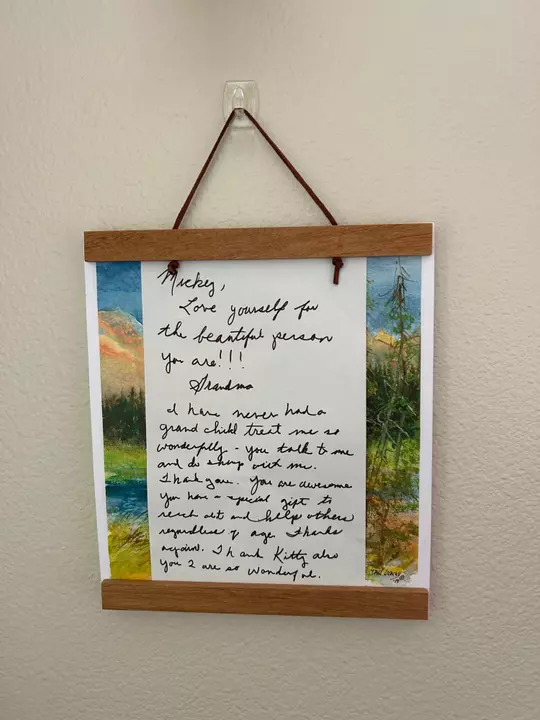 Mickey,
Love yourself for
the beautiful person
you are!!!
Grandma
I have never had a
grand child treat me so
wonderfully - you talk to me
and do things out me.
Thank you. You are awesome
you have a special gift to
reach out and help others
regardless of age. Thanks
again. Thank Kitty also
you 2 are so wonderful.